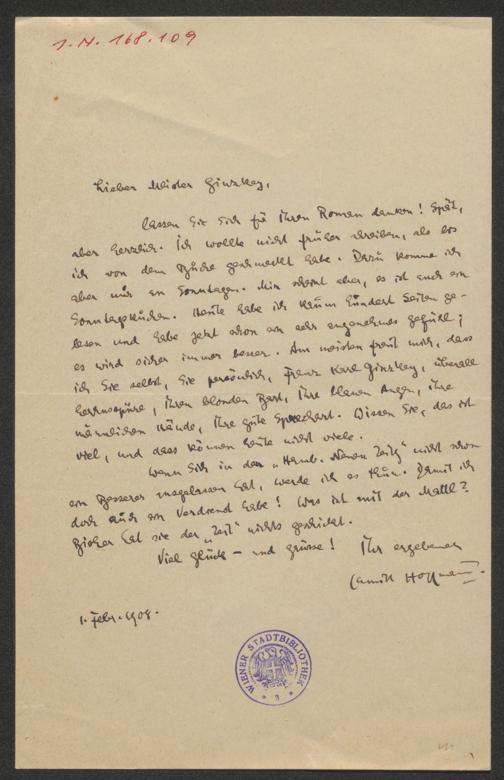 J. N. 168.109
Lieber Meister Ginzkey,
lassen Sie Sich für Ihren Roman danken! Spät,
aber herzlich. Ich wollte nicht früher schreiben, als bis
ich von dem Buche geschmeckt habe. Dazu komme ich
aber nur an Sonntagen. Mir scheint aber, es ist auch ein
Sonntagskuchen. Heute habe ich kaum hundert Seiten ge-
lesen und habe jetzt schon ein sehr angenehmes Gefühl;
es wird sicher immer besser. Am meisten freut mich, dass
ich Sie selbst, Sie persönlich, Franz Karl Ginzkey, überall
herausspüre, Ihren blonden Bart, Ihre blauen Augen, Ihre
männlichen Hände, Ihre gute Sprechart. Wissen Sie, das ist
viel, und dass können heute nicht viele.
Wenn Sich in der „Hamb. Neuen Zeitg“ nicht schon
ein Besserer ausgelassen hat, werde ich es thun. Damit ich
doch auch ein Verdienst habe! Was ist mit der
Bisher hat sie der „Zeit“ nichts geschickt.
Viel Glück – und Grüsse! Ihr ergebener
Camill Hoffmann.
1. Febr. 1908.
WIENER STADTBIBLIOTHEK